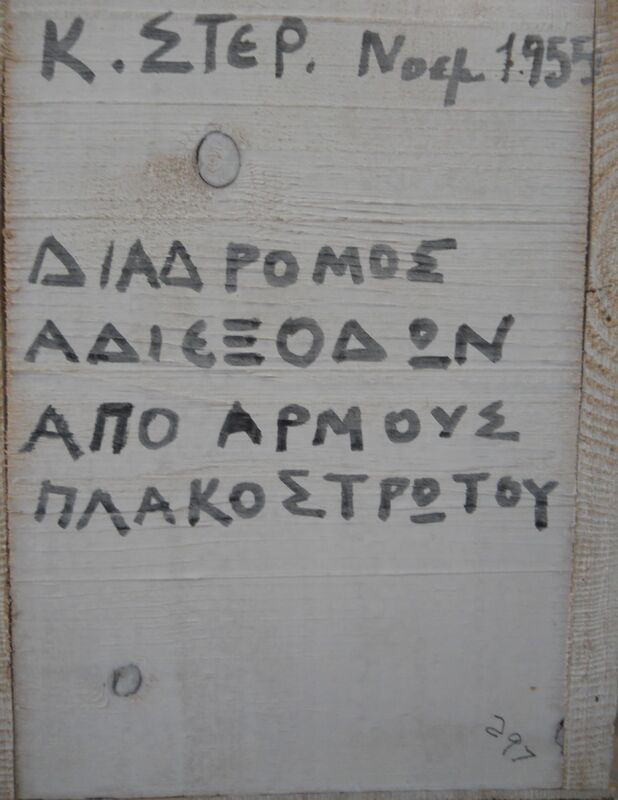 Κ. ΣΤΕΡ. Νοεμ 1955
ΔΙΑΔΡΟΜΟΣ
ΑΔΙΕΞΟΔΩΝ
ΑΠΟ ΑΡΜΟΥΣ
ΠΛΑΚΟΣΤΡΩΤΟΥ
297